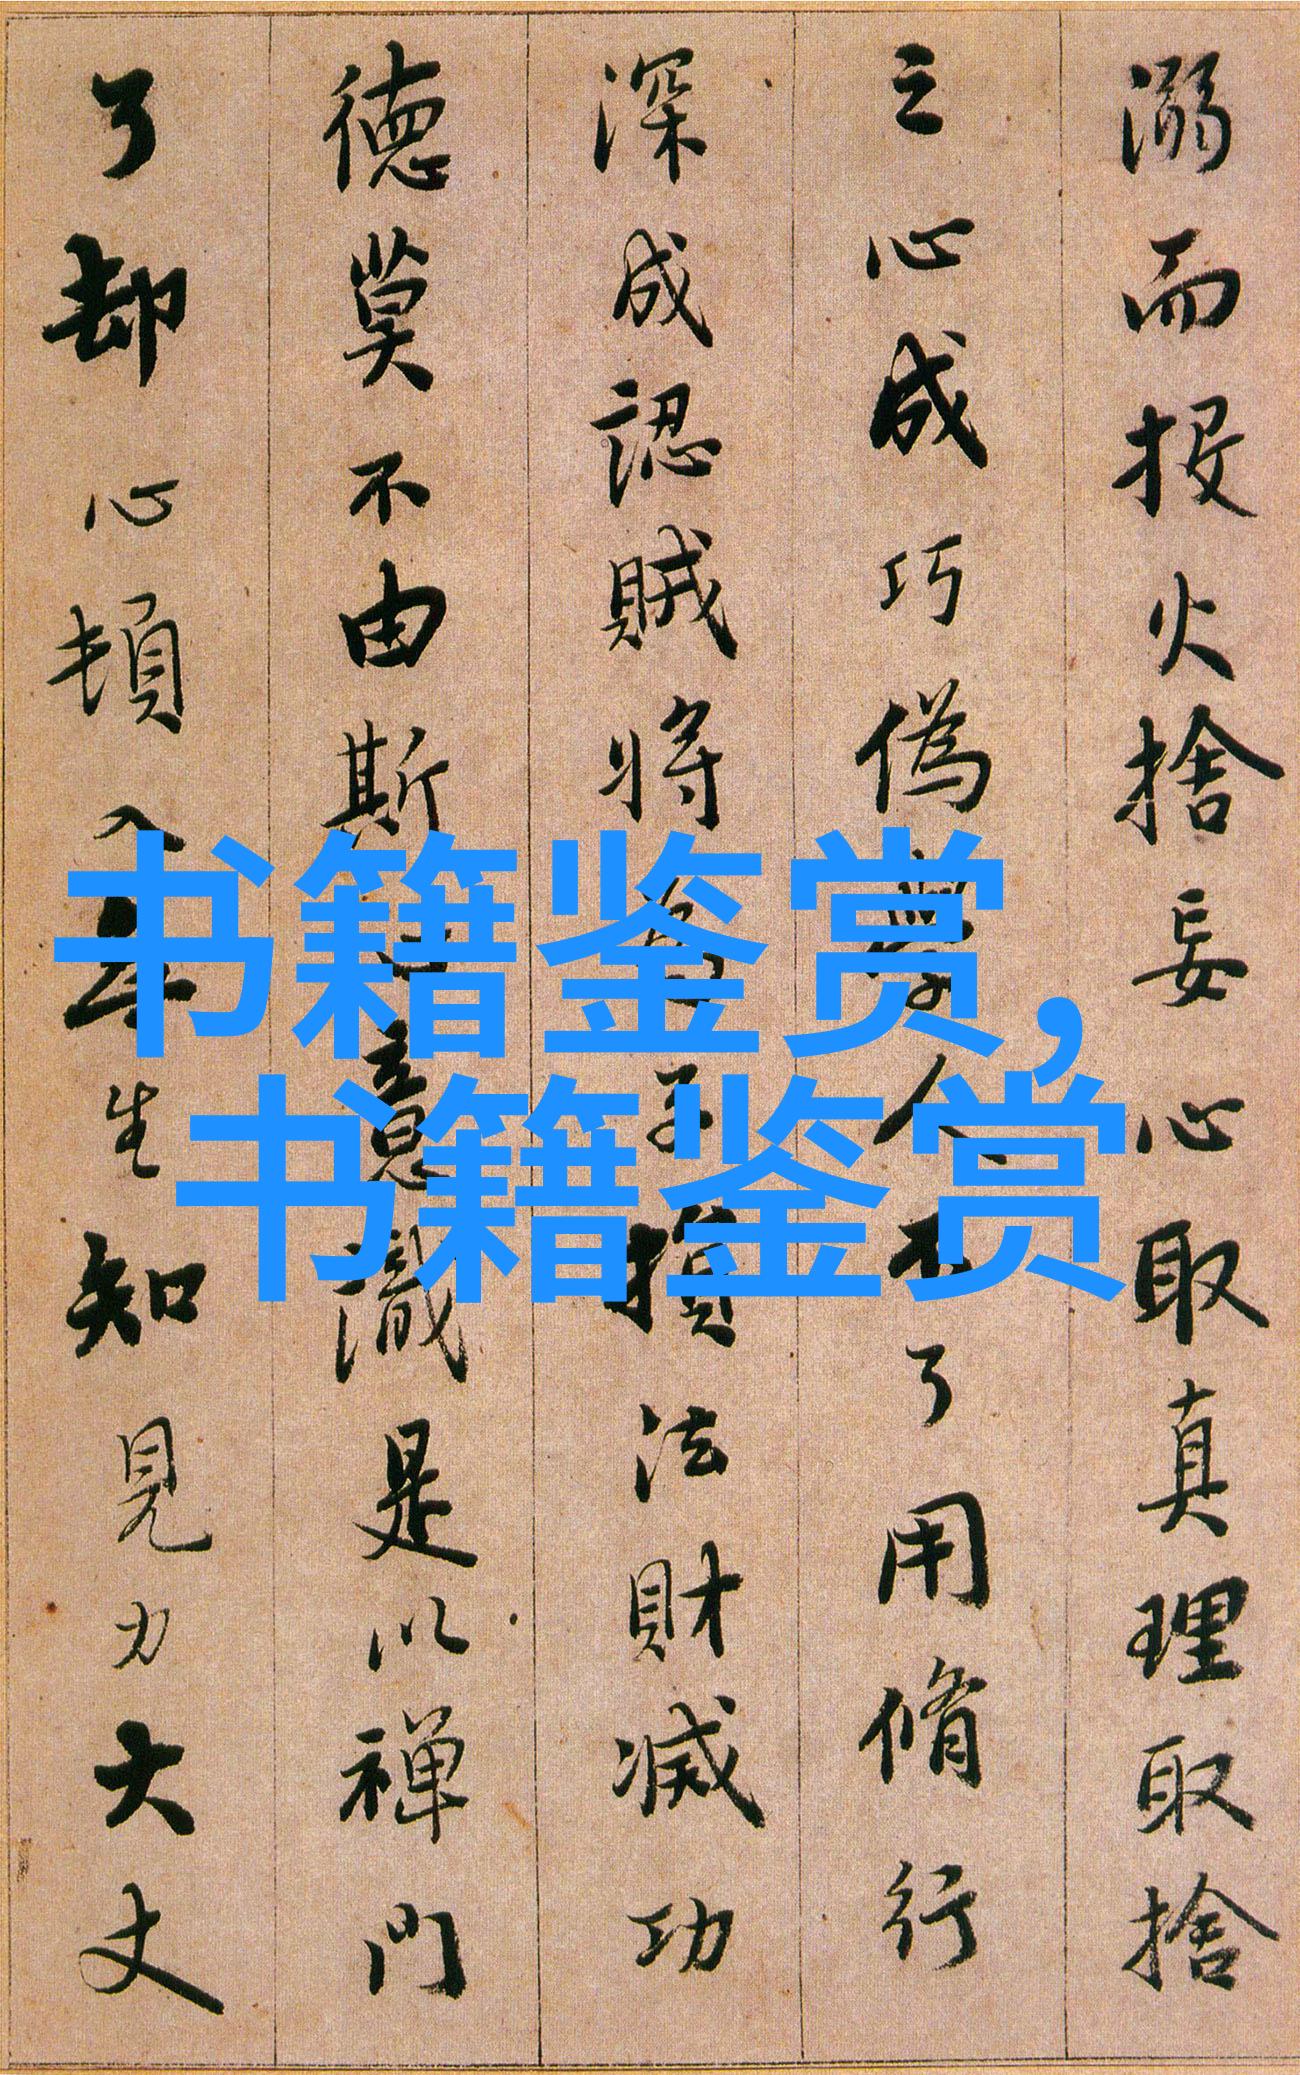 溺而投火捨妄心取真理取捨
之心成巧偽學人不了用脩行
深成認賊將為子損法財滅功
德莫不由斯意識是以禪門
了却心頓入無生知見力大丈
书籍鉴赏,
书籍鉴赏